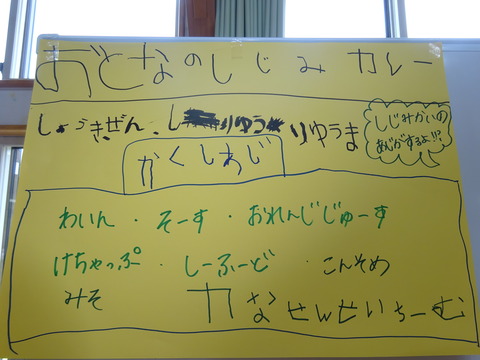 おとなのしじみカレー
しょうきぜん、し りゅう りゅうま
しじみかいの
あじがするよ!!?
かくしあじ
わいん・そーす・おれんじじゅーす
けちゃっぷ・しーふーど・こんそめ
みそ
カなせんせいちーむ